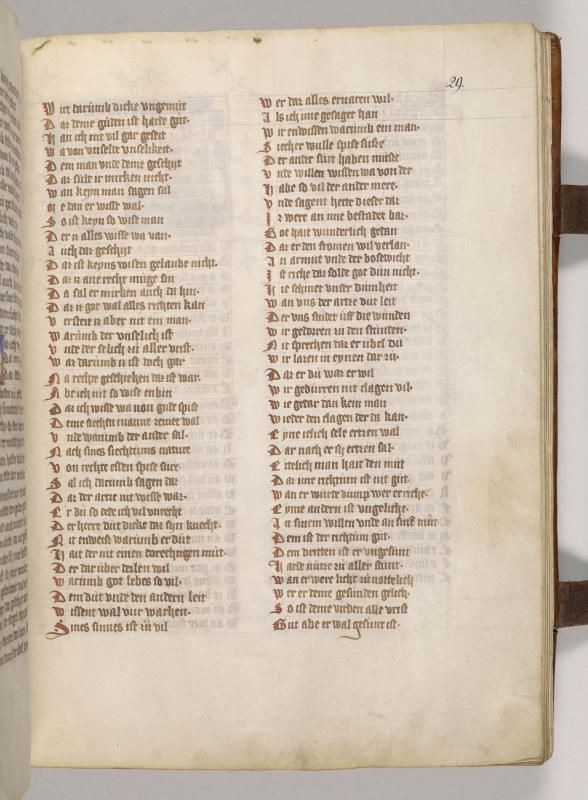 29.
Wirt darumb dicke vngemut
Dar deme guten ist harde gut.
Han ich mit vil gar geseit
Wa von vnselde vnselikeit.
Dem man vnde deme geschiht
Daz sult ir mirken nicht.
Wan keyn man sagen sal
Me dan er wisse wal.
So ist keyn so wise man
Der iz alles wisse wa van.
Auch daz geschiht
Daz ist keyns wisen gelaube nicht.
Daz iz ane recht muge sin
Da sal er mirken auch da hin.
Daz iz got wal alles richten kan
Versteit iz aber nit ein man.
Warumb der vnselich ist
Vnde der selich zu aller vrist.
Waz darumb iz ist doch gar
Na rechte geschiehen daz ist war.
Abe ich nit so wise enbin
Daz ich wisse wa von gude spise
Deme siechen manne zemet wal
Vnde warumb der ander sal.
Nach sines siechtums nature
Von rechte essen spise suer.
Sal ich darumb sagen daz
Daz der artzte nit wisse waz.
Er du so dede ich vil vnrecht
Der herre dut dicke daz syn knecht.
Nit enweiz warumb er dut
Hait der nit einen dorechtigen mut.
Der dar uber deilen wil
Warumb got lebes so vil.
Dem dut vnde den andern leit
Wissent wal vur warheit.
Sines sinnes ist zu vil
Wer daz alles eruaren wil.
Als ich uwe gesaget han
Wir enwissen warumb ein man.
Siecher wulle spise suße
Der ander sure haben muste
Vnde willen wissen wa von der
Habe so vil der ander mere.
Vnde sagent hette dieser daz
Iz were an ime bestadet baz.
Got hait wunderlich getan
Daz er den fromen wil verlan.
In armut vnde der bosewicht
Ist riche daz solde got dun nicht.
Hie schinet vnser dumheit
Wan vns der artze dut leit
Der vns snidet uß die wunden
Wir gedoren zu den stunden.
Nit sprechen daz er ubel du
Wir lazen in eynen dar zu.
Daz er du waz er wil
Wir gedurren nit clagen vil.
Wie gedar dan kein man
Wieder den clagen der da kan.
Eyme iclich sele ertzen wal
Dar nach er sy ertzen sal.
Etelich man hait den mut
Daz ime richtum ist nit gut.
Wan er wurde dump wer er riche.
Eyme andern ist vngeliche.
In sinem willen vnde an sime mut
Dem ist der richtum gut.
Dem dritten ist er vngesunt
Harde nutze zu aller stunt.
Wan er were licht zu notlich
Wer er deme gesunden gelich.
So ist deme vierden alle vrist
Gut abe er wal gesunt ist.